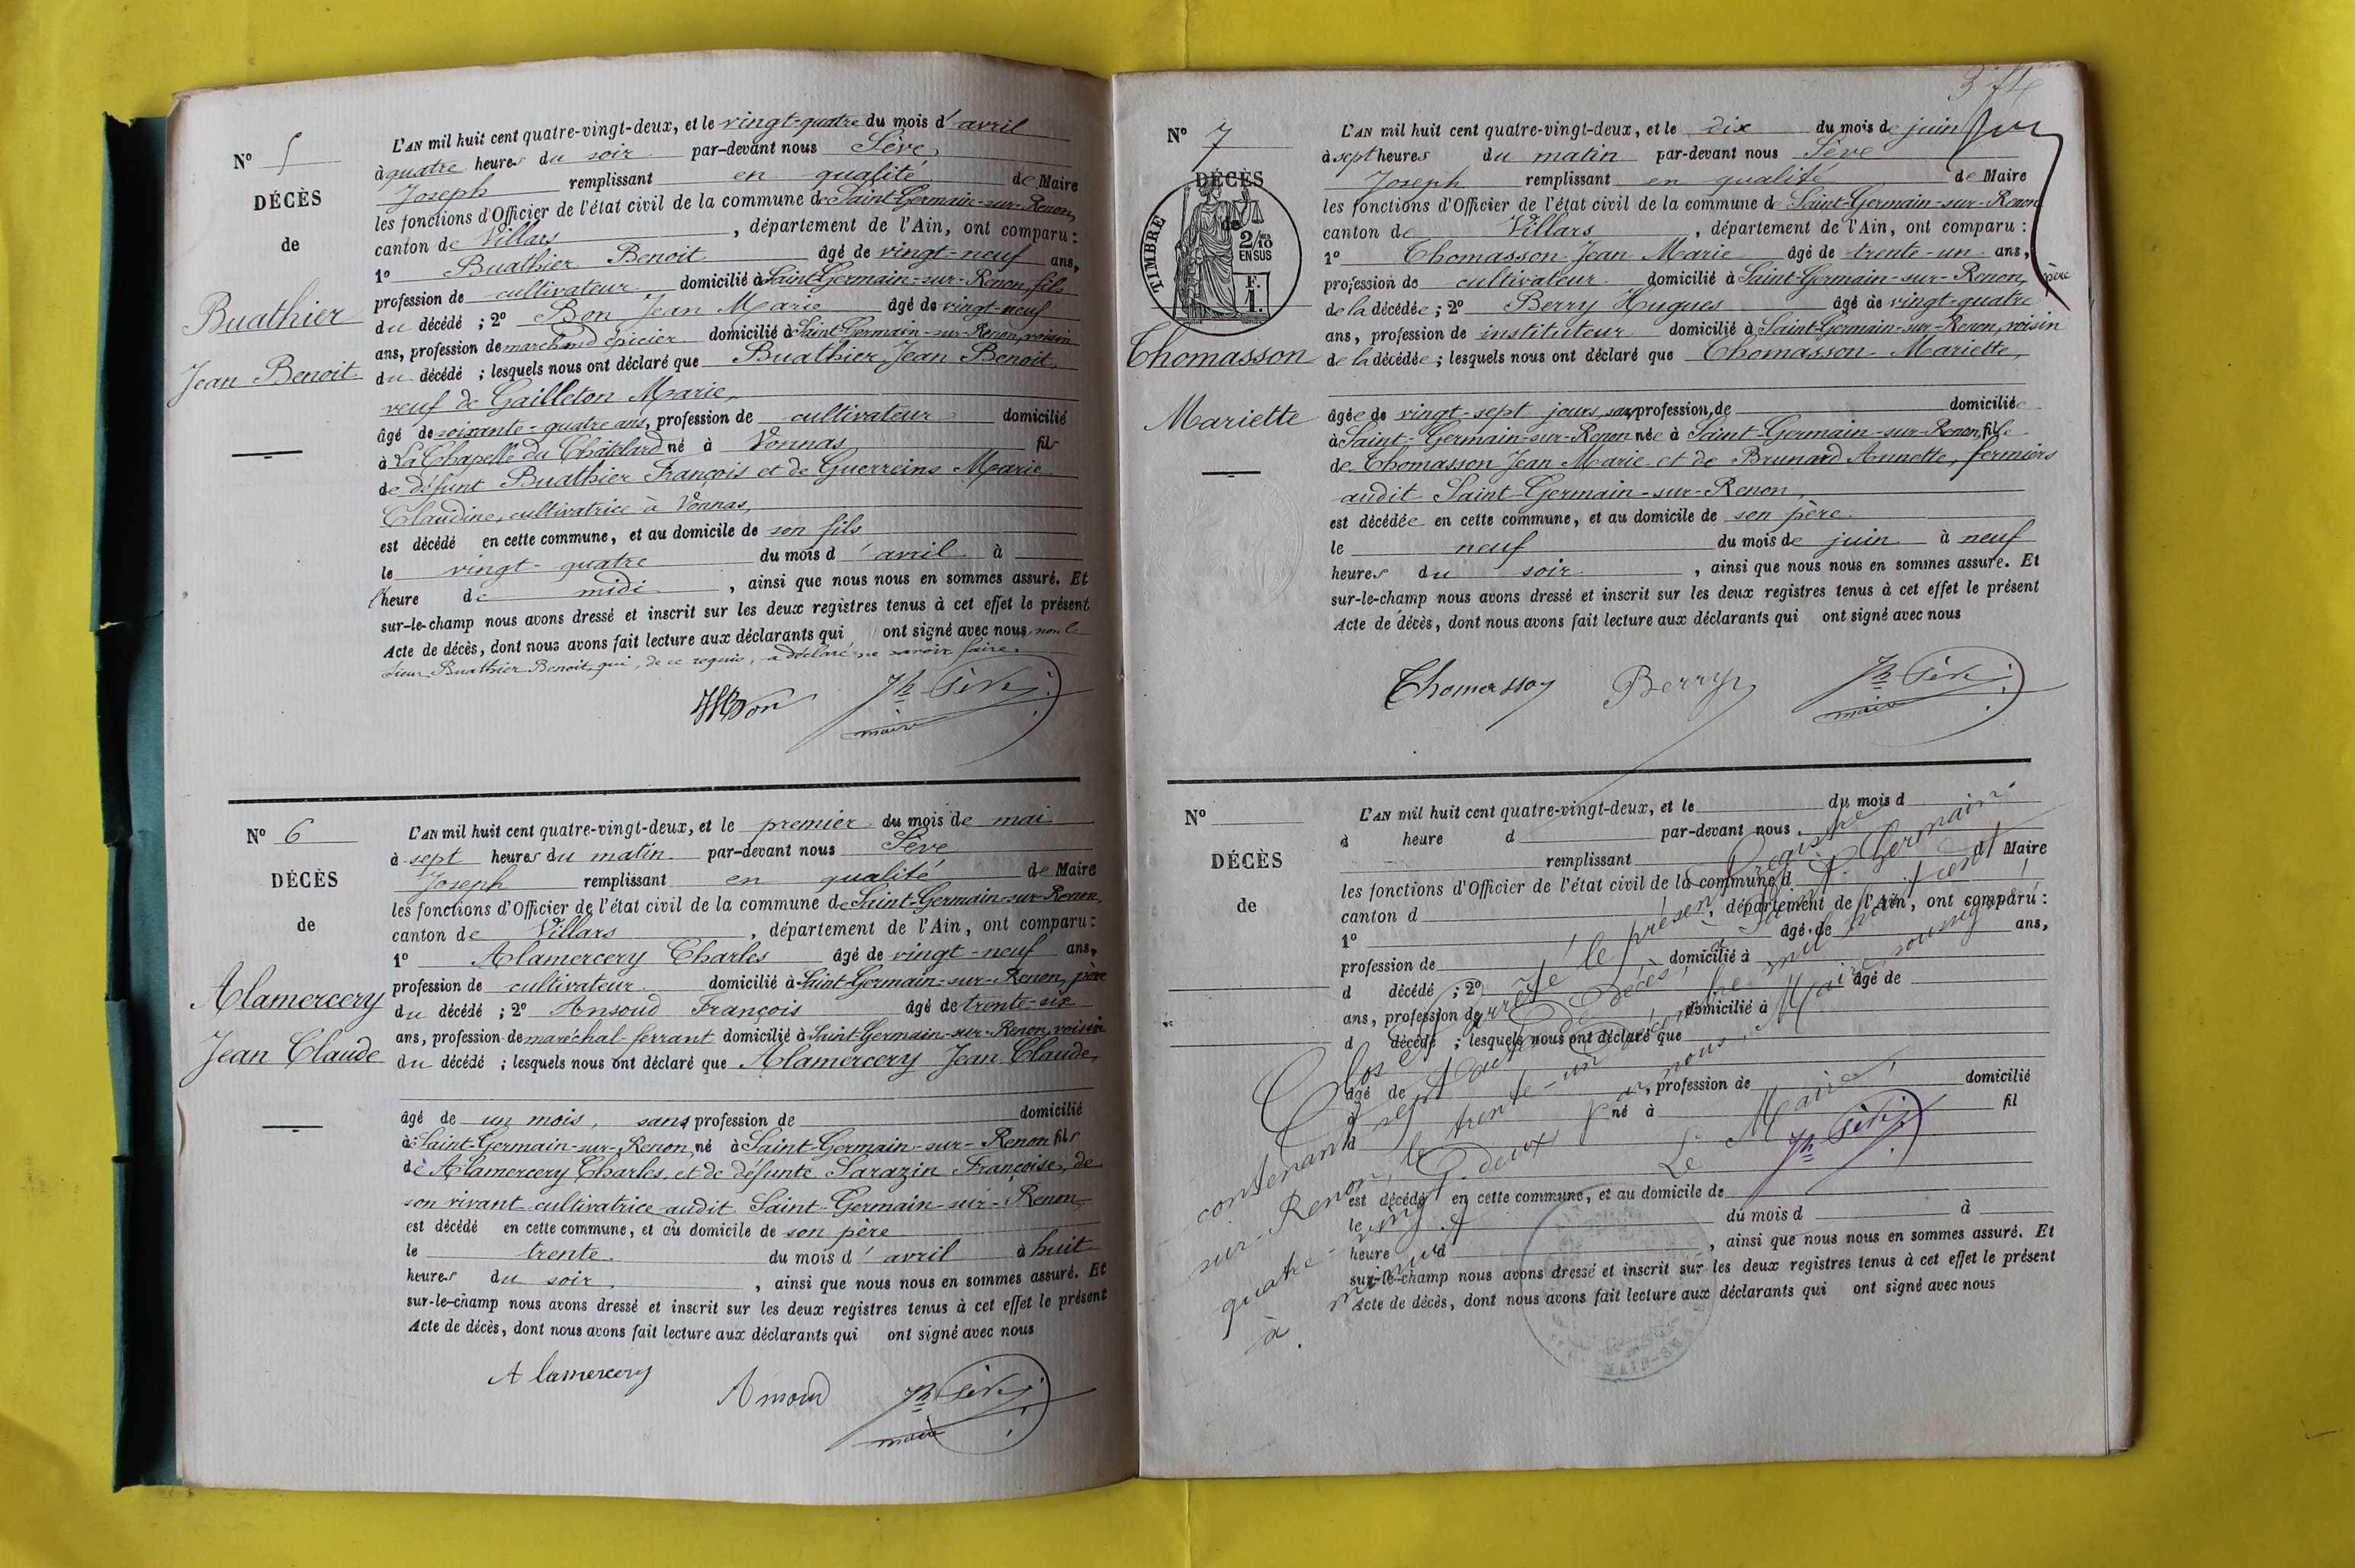 N° 5
DÉCÈS
de
Buathier
Jean Benoit
L'AN mil huit cent quatre-vingt-deux, et le vingt-quatre du mois d'avril
à quatre heures du soir par-devant nous Sève
Joseph remplissant en qualité de Maire
les fonctions d'Officier de l'état civil de la commune de Saint-Germain-sur-Renon,
canton de Villars, département de l'Ain, ont comparu :
1° Buathier Benoit âgé de vingt-neuf ans,
profession de cultivateur domicilié à Saint-Germain-sur-Renon, fils
du décédé ; 2° Bon Jean Marie âgé de vingt-neuf
ans, profession de marchand épicier domicilié à Saint-Germain-sur-Renon, voisin
du décédé ; lesquels nous ont déclaré que Buathier Jean Benoit,
veuf de Gailleton Marie,
âgé de soixante-quatre ans, profession de cultivateur domicilié
à La Chapelle du Châtelard né à Vonnas fils
de défunt Buathier François et de Guerreins Marie
Claudine, cultivatrice à Vonnas,
est décédé en cette commune, et au domicile de son fils
le vingt-quatre du mois d'avril à
heure de midi, ainsi que nous nous en sommes assuré. Et
sur-le-champ nous avons dressé et inscrit sur les deux registres tenus à cet effet le présent
Acte de décès, dont nous avons fait lecture aux déclarants qui ont signé avec nous, non le
sieur Buathier Benoit qui, de ce requis, a déclaré ne savoir faire.
JMBon Jh Sève
maire
N° 6
DÉCÈS
de
Alamercery
Jean Claude
L'AN mil huit cent quatre-vingt-deux, et le premier du mois de mai
à sept heures du matin par-devant nous Sève
Joseph remplissant en qualité de Maire
les fonctions d'Officier de l'état civil de la commune de Saint-Germain-sur-Renon,
canton de Villars, département de l'Ain, ont comparu :
1° Alamercery Charles âgé de vingt-neuf ans,
profession de cultivateur domicilié à Saint-Germain-sur-Renon, père
du décédé ; 2° Ansoud François âgé de trente-six
ans, profession de maréchal-ferrant domicilié à Saint-Germain-sur-Renon, voisin
du décédé ; lesquels nous ont déclaré que Alamercery Jean Claude,
âgé de un mois, sans profession de domicilié
à Saint-Germain-sur-Renon, né à Saint-Germain-sur-Renon fils
de Alamercery Charles, et de défunte Sarazin Françoise, de
son vivant cultivatrice audit Saint-Germain-sur-Renon
est décédé en cette commune, et au domicile de son père
le trente du mois d'avril à huit
heures du soir, ainsi que nous nous en sommes assuré. Et
sur-le-champ nous avons dressé et inscrit sur les deux registres tenus à cet effet le présent
Acte de décès, dont nous avons fait lecture aux déclarants qui ont signé avec nous
Alamercery Jh Sève
maire
N° 7
DÉCÈS
de
TIMBRE
2/10
EN SUS
F.
1.
Thomasson
Mariette
L'AN mil huit cent quatre-vingt-deux, et le dix du mois de juin
à sept heures du matin par-devant nous Sève
Joseph remplissant en qualité de Maire
les fonctions d'Officier de l'état civil de la commune de Saint-Germain-sur-Renon
canton de Villars, département de l'Ain, ont comparu :
1° Thomasson Jean Marie âgé de trente-un ans,
profession de cultivateur domicilié à Saint-Germain-sur-Renon, père
de la décédée ; 2° Berry Hugues âgé de vingt-quatre
ans, profession de instituteur domicilié à Saint-Germain-sur-Renon, voisin
de la décédée ; lesquels nous ont déclaré que Thomasson Mariette,
âgée de vingt-sept jours, sans profession, de domiciliée
à Saint-Germain-sur-Renon née à Saint-Germain-sur-Renon, fille
de Thomasson Jean Marie et de Brunard Annette, fermiers
audit Saint-Germain-sur-Renon,
est décédée en cette commune, et au domicile de son père
le neuf du mois de juin à neuf
heures du soir, ainsi que nous nous en sommes assuré. Et
sur-le-champ nous avons dressé et inscrit sur les deux registres tenus à cet effet le présent
Acte de décès, dont nous avons fait lecture aux déclarants qui ont signé avec nous
Thomasson Berry Jh Sève
maire
N°
DÉCÈS
de
L'AN mil huit cent quatre-vingt-deux, et le du mois d
à heure d par-devant nous
remplissant d Maire
les fonctions d'Officier de l'état civil de la commune d
canton d, département de l'Ain, ont comparu :
1° âgé de ans,
profession de domicilié à
d décédé ; 2° âgé de
ans, profession de domicilié à
d décédé ; lesquels nous ont déclaré que
âgé de, profession de domicilié
à né à fil
d
est décédé en cette commune, et au domicile de
le du mois d à
heure d, ainsi que nous nous en sommes assuré. Et
sur-le-champ nous avons dressé et inscrit sur les deux registres tenus à cet effet le présent
Acte de décès, dont nous avons fait lecture aux déclarants qui ont signé avec nous
Clos et arrêté le présent registre
contenant sept actes de Décès, à Saint-Germain
sur-Renon, le trente-un Décembre mil huit cent
quatre-vingt-deux par nous, Maire soussigné
à minuit.
Le Maire,
Jh Sève